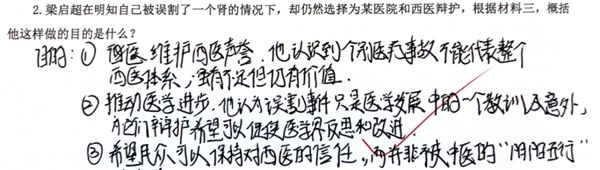 2.梁启超在明知自己被误割了一个肾的情况下，却仍然选择为某医院和西医辩护，根据材料三，概括
他这样做的目的是什么？
目的：① 西医 维护西医声誉。他认识到个别医疗事故不能代表整个
西医体系，虽有不足但仍有价值.
② 推动医学进步.他认为误割事件只是医学发展中的一个教训以及意外，
为它们辩护希望可以促使医学界反思和改进.
③ 希望民众可以保持对西医的信任，而并非被中医的“阴阳五行”